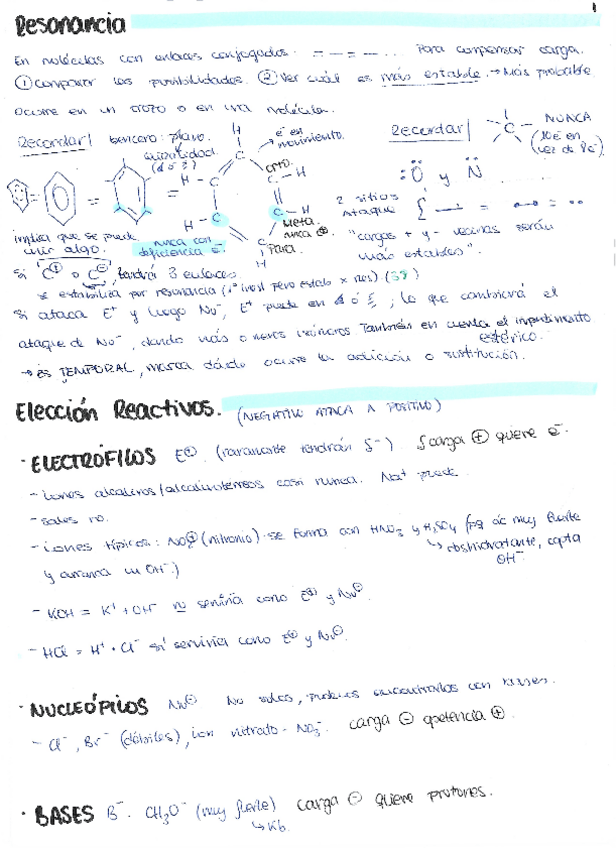 1
Resonancia
En moléculas con enlaces conjugados: = — = — = — ... Para compensar carga.
① Comparar las posibilidades. ② Ver cuál es más estable. → Más probable.
Ocurre en un trozo o en una molécula.
Recordar| benceno: plano.
e⁻ en movimiento.
Recordar|
C
NUNCA
(10 e⁻ en vez de 8e⁻)
H
H
C
C
C
C - H
orto.
C - H
meta
nunca ⊕.
para.
H
:Ö y N̈
2 sitios ataque
"cargas + y - vecinas serán más estables".
implica que se puede unir algo.
nunca con deficiencia e⁻.
Si C⊕ o C⊖, tendrá 3 enlaces.
se estabiliza por resonancia
Si ataca E⁺ y luego Nu⁻, E⁺ puede en , lo que cambiará el
ataque de Nu⁻, dando más o menos isómeros. También en cuenta el impedimento
estérico.
→ es TEMPORAL, marca dónde ocurre la adición o sustitución.
Elección Reactivos. (NEGATIVO ATACA A POSITIVO)
· ELECTRÓFILOS E⊕. (raramente tendrán δ⁻) carga ⊕ quiere e⁻.
- iones alcalinos/alcalinotérreos casi nunca. Na⁺ puede.
- sales no.
- iones típicos: NO₂⊕ (nitronio) · se forma con HNO₃ y H₂SO₄ (pq ác muy fuerte
↳ deshidratante, capta OH⁻.
y arranca un OH⁻)
- KOH = K⁺ + OH⁻ no serviría como E⊕ y Nu⊖.
- HCl = H⁺ · Cl⁻ sí serviría como E⊕ y Nu⊖.
· NUCLEÓFILOS Nu⊖ No solos, podemos encontrarlos con
- Cl⁻, Br⁻ (débiles), ion nitrato - NO₃⁻. carga ⊖ apetencia ⊕.
· BASES B⁻. CH₃O⁻ (muy fuerte) carga ⊖ quiere protones.
↳ Kb.